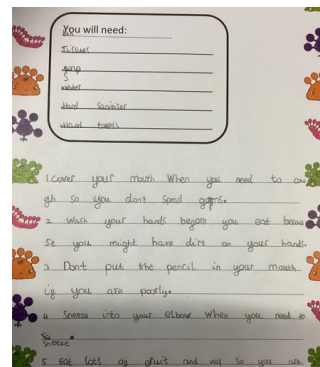 You will need:
Tissues
soap
water
Hand sanitiser
Hand towels
1. Cover your mouth When you need to cou
gh so you don't spred germs.
2. Wash your hands before you eat becau
se you might have dirt on your hands.
3. Dont put the pencil in your mouth
if you are poorly.
4. Sneeze into your elbow When you need to
sneeze
5. Eat lots of fruit and veg so you are